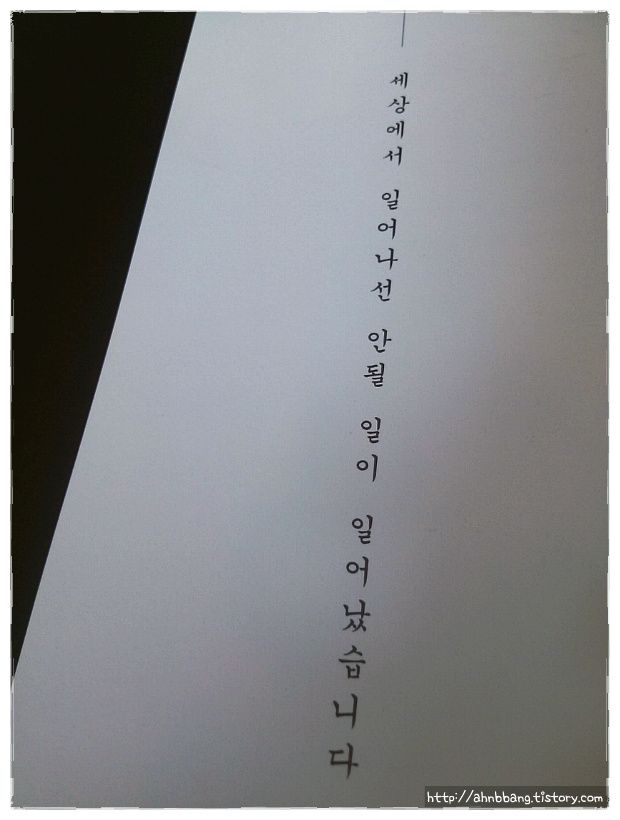 세상에서 일어나선 안될 일이 일어났습니다
http://ahnbbang.tistory.com